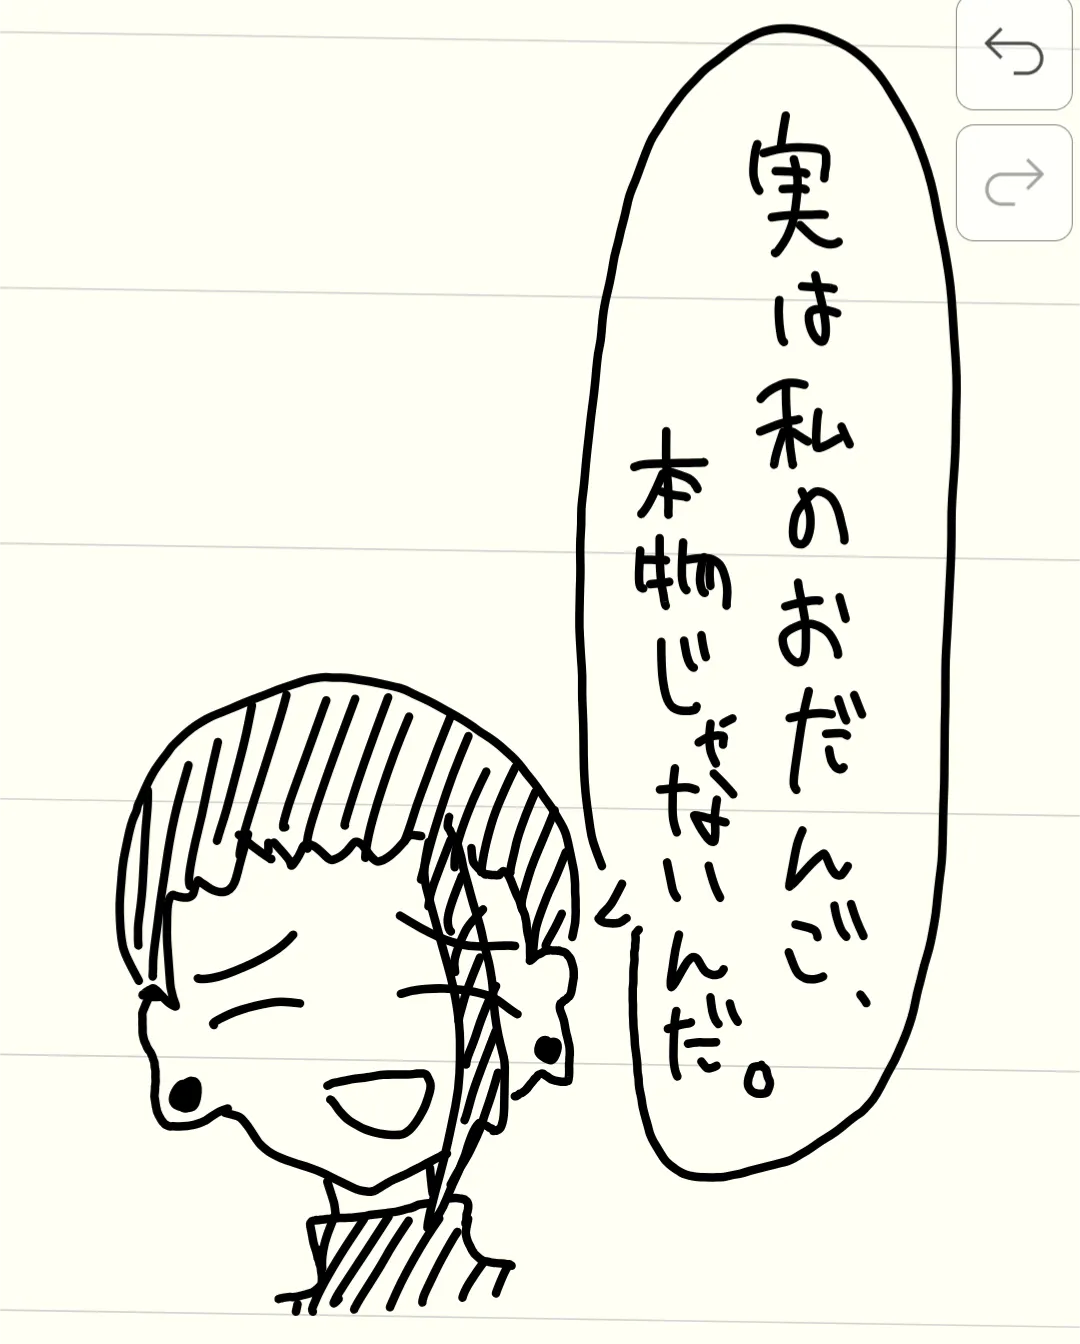 実は私のおだんご、
本物じゃないんだ。